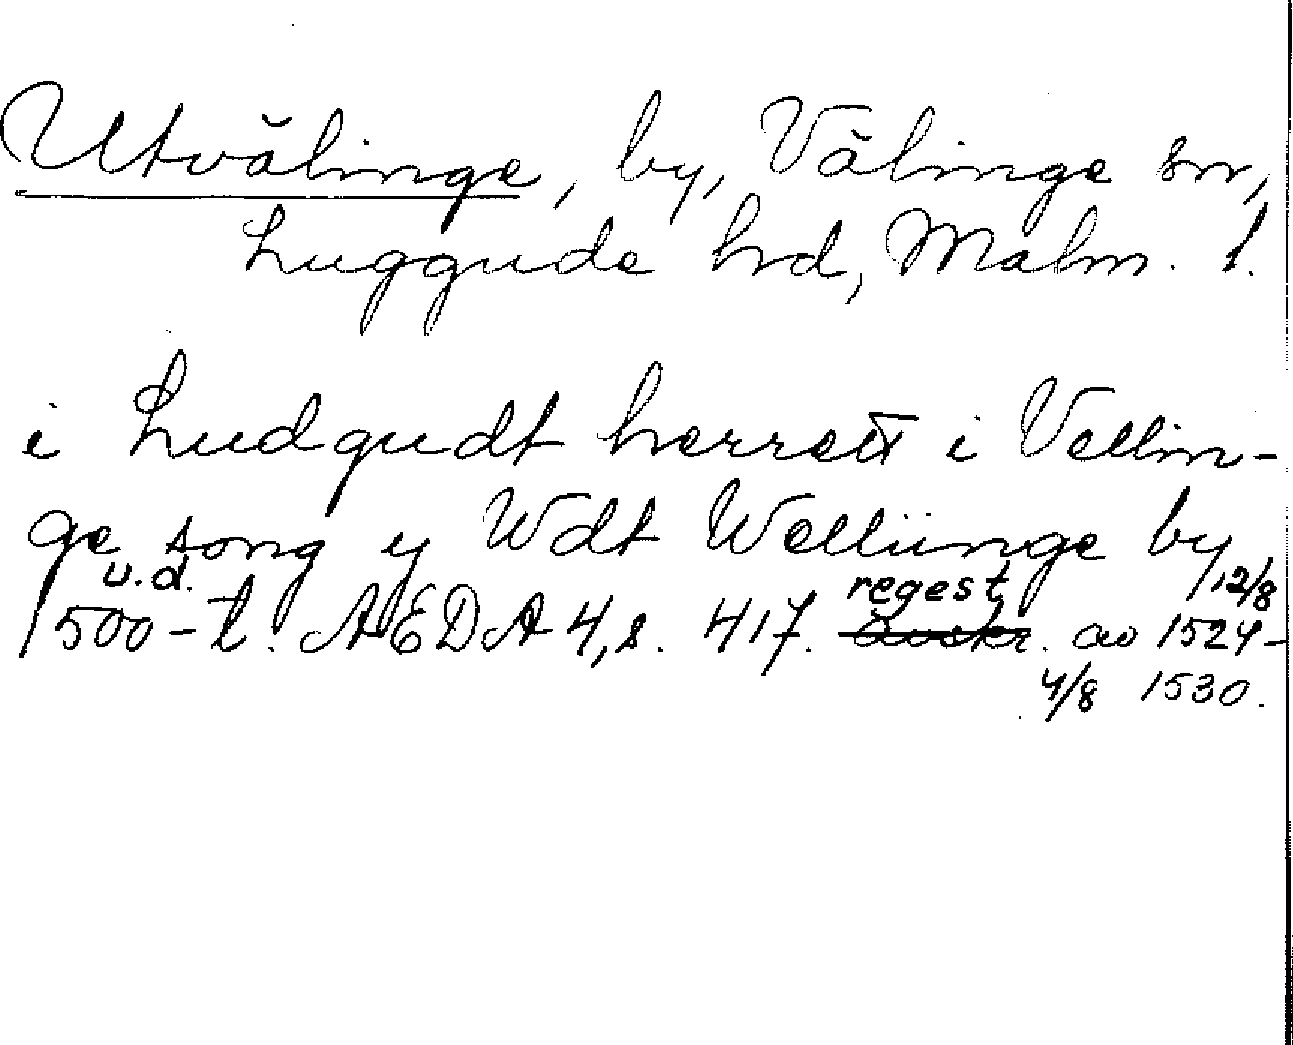 Utvälinge, by, Välinge sn,
Luggude hrd, Malm. l.
i Ludgudt herrett i Vellin-
ge song y Wdt Welliinge by
u.d. regest 12/8
1500-t. AEDA 4, s. 417. avskr. av 1524-
4/8 1530.